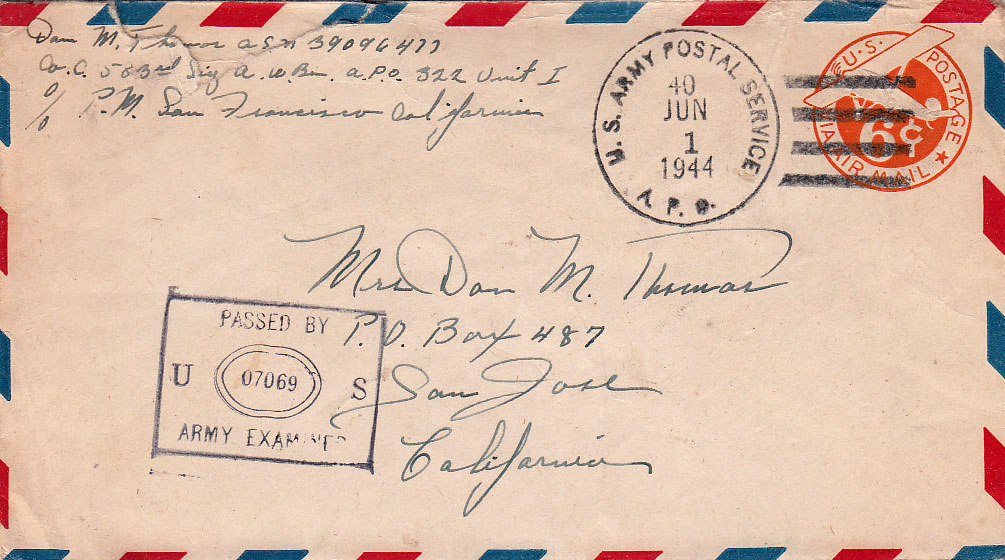 Dan M. Thomas ASN 39096477
Co. C. 583rd Sig A. W Bn. A.P.O. 322 Unit I
c/o P.M. San Francisco California
U. S. ARMY POSTAL SERVICE
40
JUN
1
1944
A. P. O.
U.S. POSTAGE
6¢
VIA AIR MAIL
Mrs Dan M. Thomas
P.O. Box 487
San Jose
California
PASSED BY
U 07069 S
ARMY EXAMINER